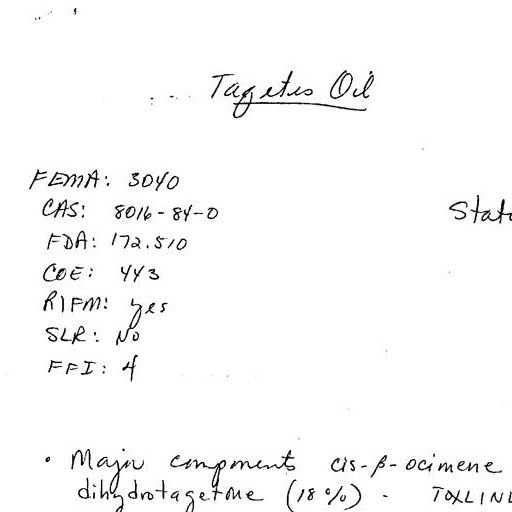 Tagetes Oil
FEMA: 3040
CAS: 8016-84-0
Stat
FDA: 172.510
COE: 443
RIFM: yes
SLR: No
FFI: 4
• Major components cis-β-ocimene
dihydrotagetone (18%) - TOXLIN